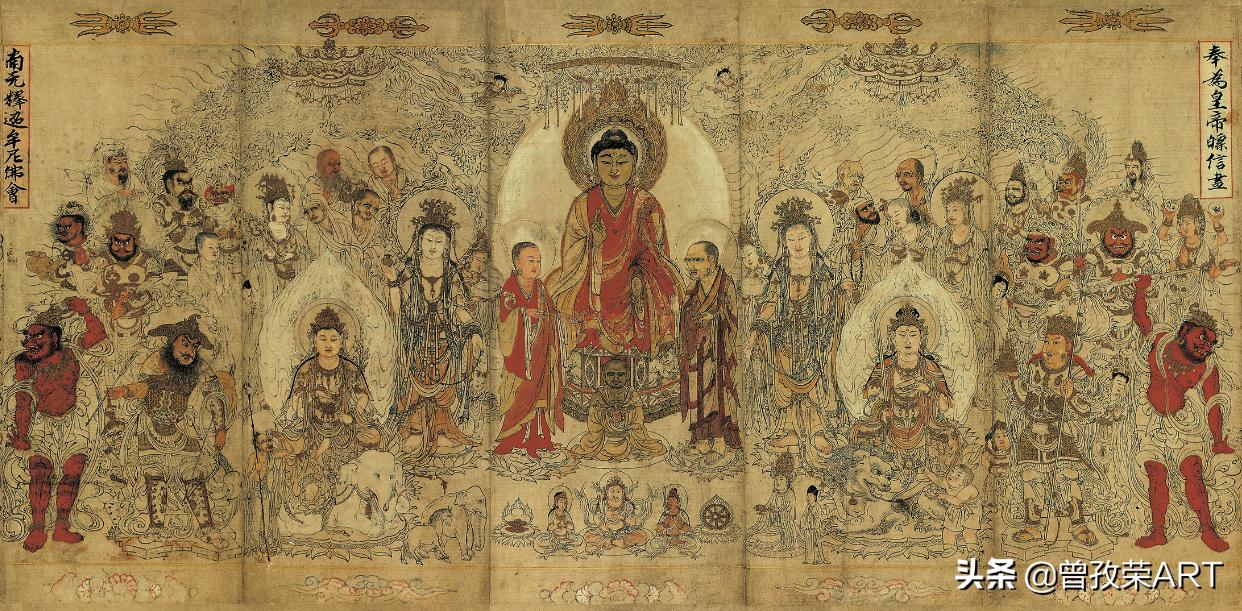 奉為皇帝驃信畫
南无釋迦牟尼佛會
头条 @曾孜荣ART